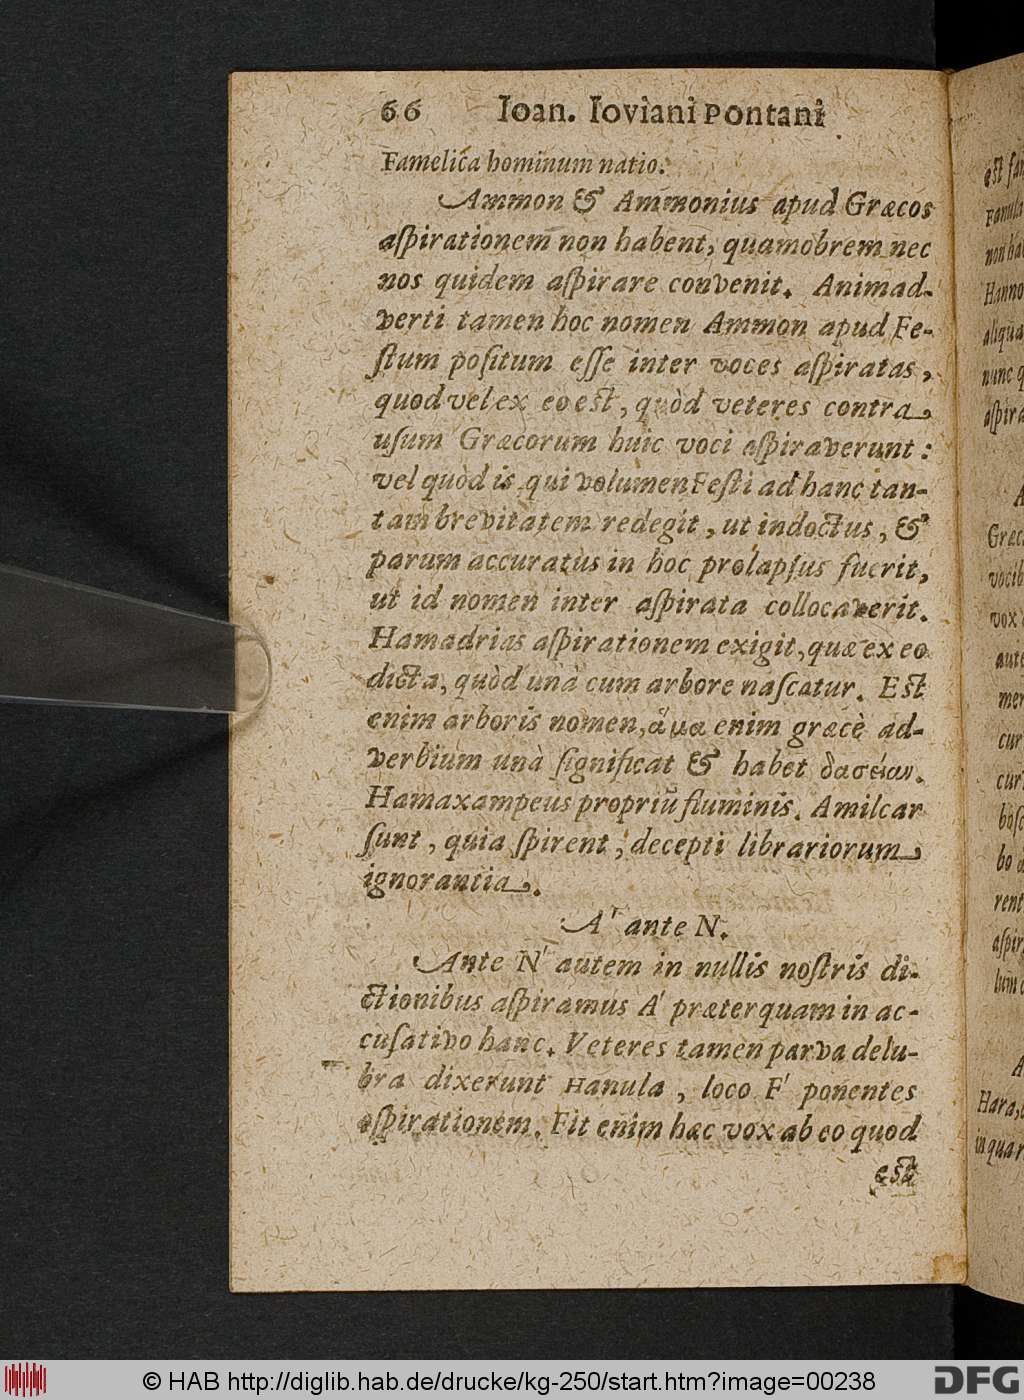 66 Ioan. Ioviani Pontani
Famelica hominum natio.
Ammon & Ammonius apud Græcos
aſpirationem non habent, quamobrem nec
nos quidem aſpirare convenit. Animad-
verti tamen hoc nomen Ammon apud Fe-
ſtum poſitum eſſe inter voces aſpiratas,
quod vel ex eo est, quòd veteres contra
uſum Græcorum huic voci aſpiraverunt:
vel quòd is, qui volumen Feſti ad hanc tan-
tam brevitatem redegit, ut indoctus, &
parum accuratus in hoc prolapſus fuerit,
ut id nomen inter aſpirata collocaverit.
Hamadrias aſpirationem exigit, quæ ex eo
dicta, quòd unà cum arbore naſcatur. Est
enim arboris nomen, ἅμα enim græcè ad-
verbium unà ſignificat & habet δασεῖαν.
Hamaxampeus propriũ fluminis. Amilcar
ſunt, quia ſpirent, decepti librariorum
ignorantia.
A' ante N.
Ante N' autem in nullis noſtris di-
ctionibus aſpiramus A' præterquam in ac-
cuſativo hanc. Veteres tamen parva delu-
bra dixerunt Hanula, loco F' ponentes
aſpirationem. Fit enim hæc vox ab eo quod
est
est fan
Fanula
non hab
Hanno
aliqua
nunc q
aſpira
A
Græc
vocib
vox
aute
mer
cur
cur
boſc
bo
rent
aſpir
lum
A
Hara,
in quar
© HAB http://diglib.hab.de/drucke/kg-250/start.htm?image=00238
DFG